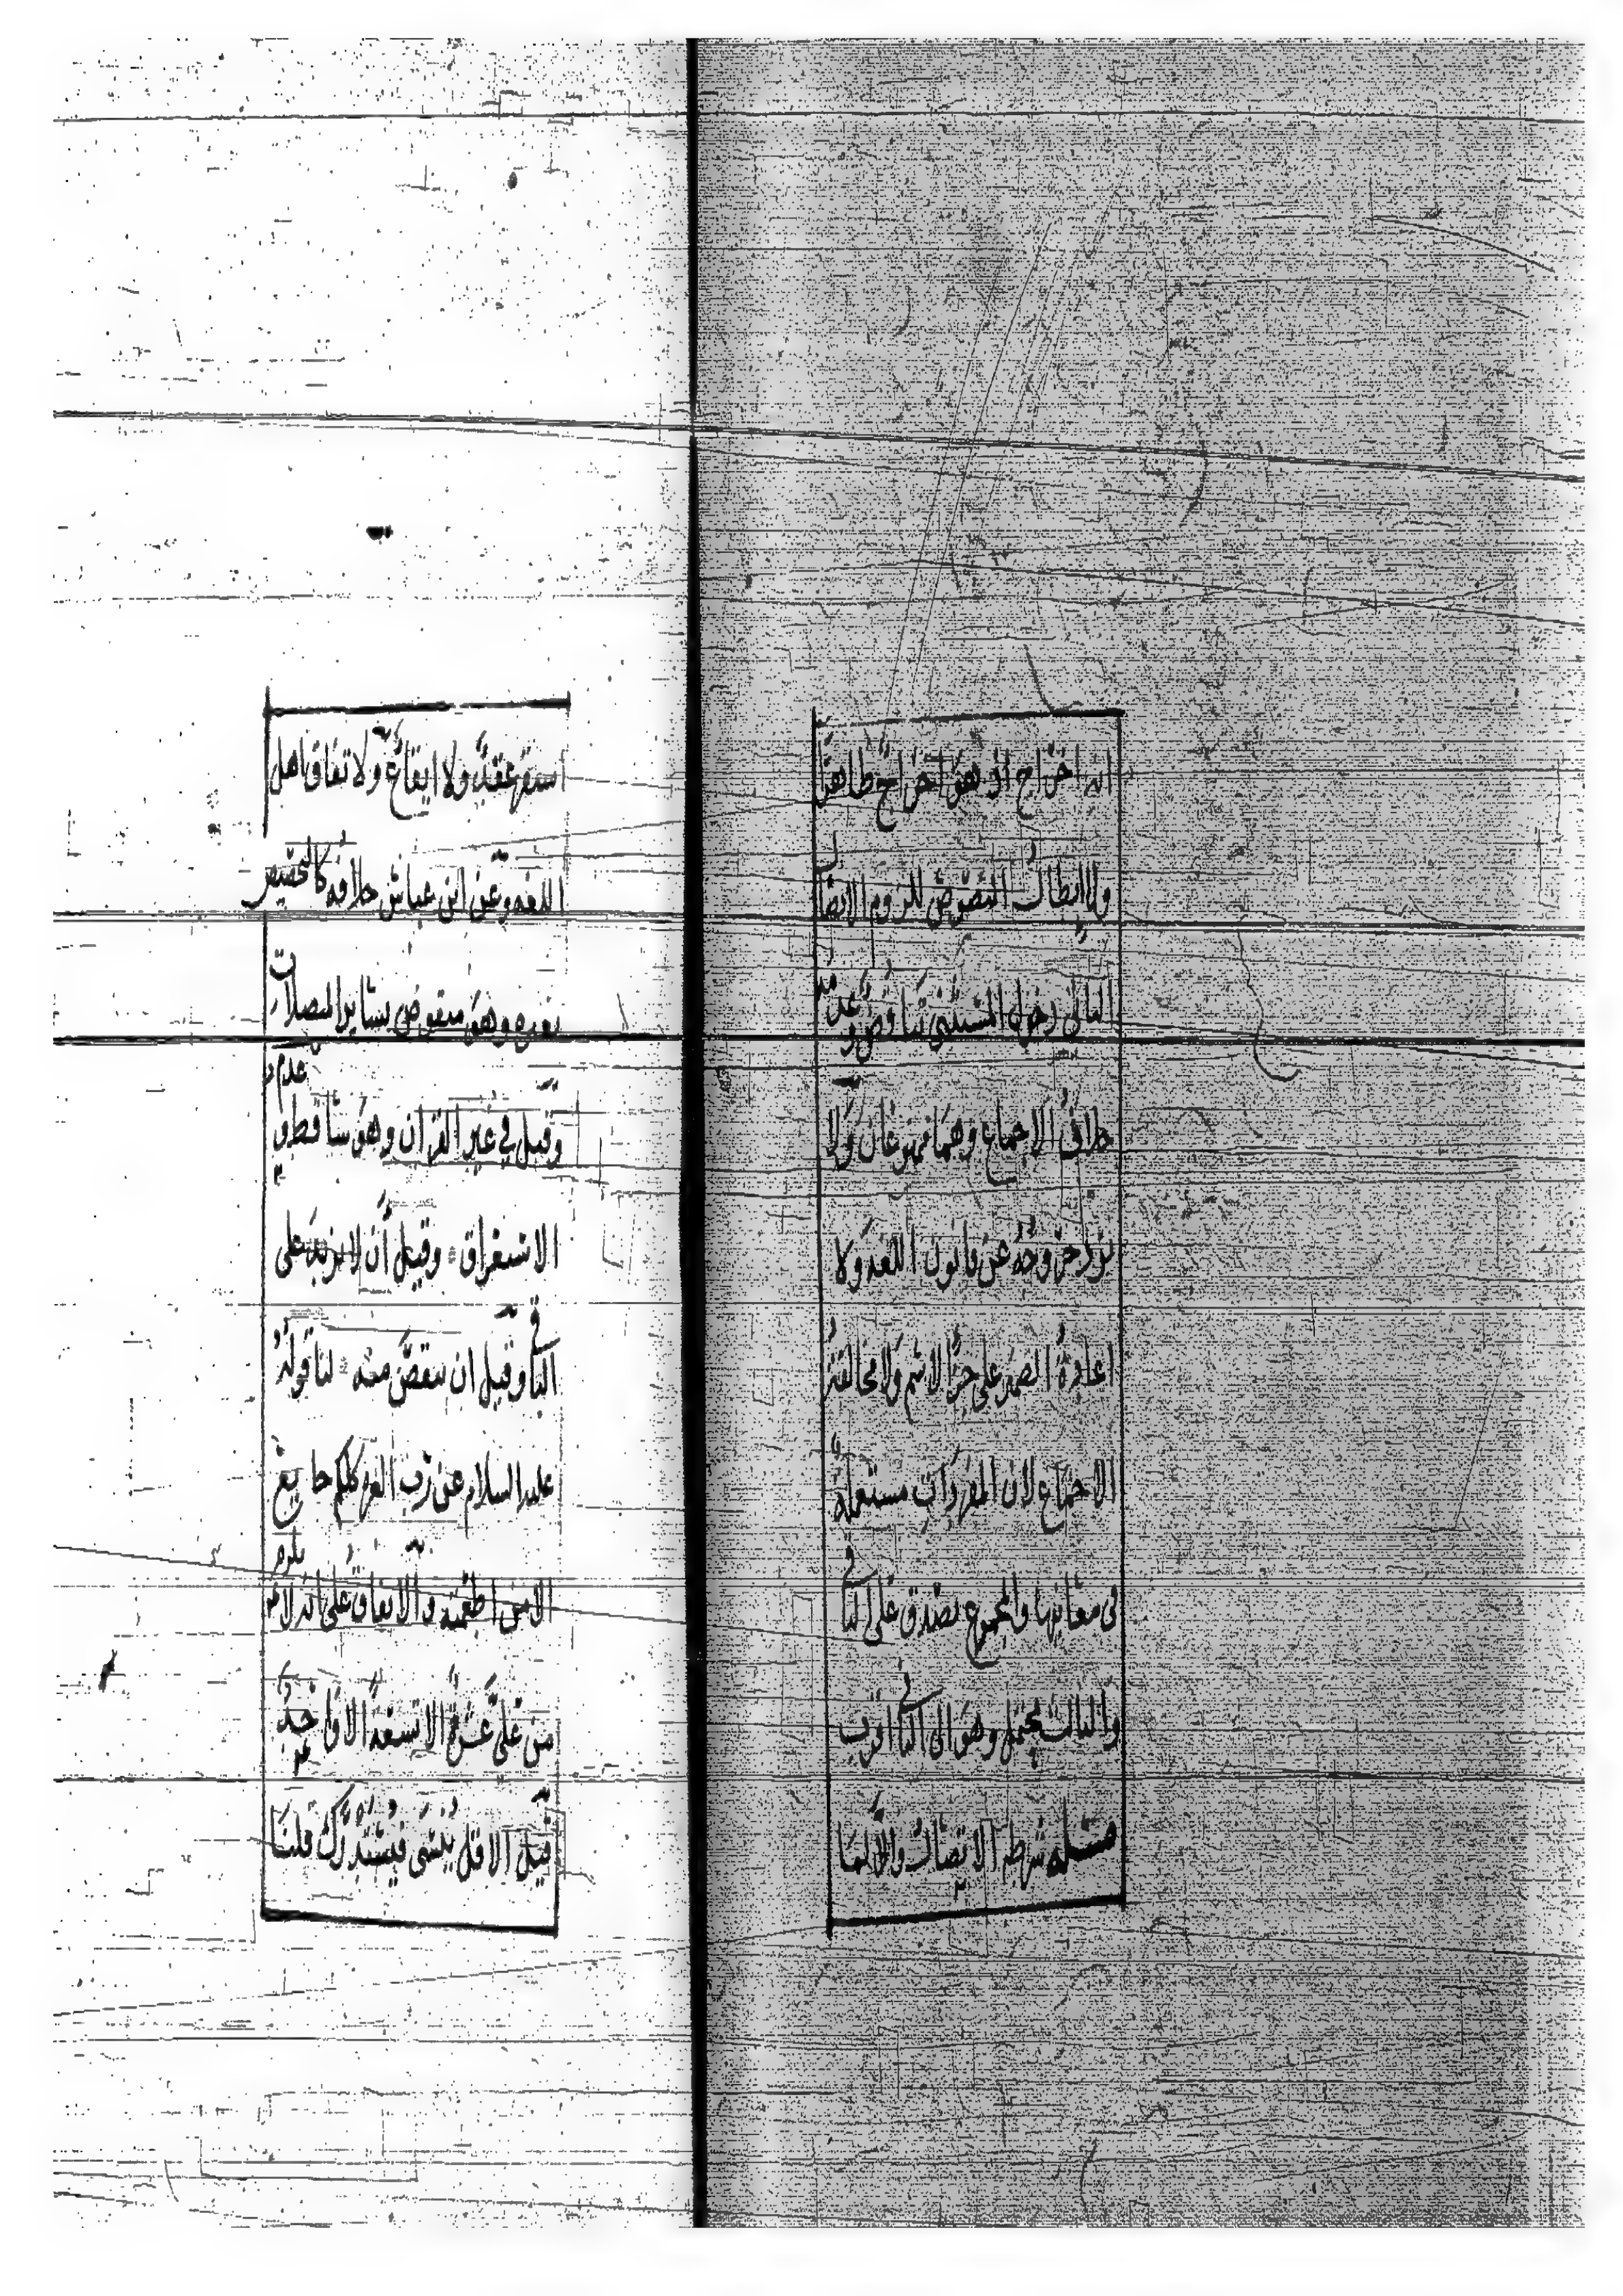 انه اخراج او هو اخراج ظاهرا
ولابطال النصوص للزوم الاتصال
لنا ان دخول المستثنى تناقض وعدمه
خلاف الاجماع وهما ممنوعان ولا
خروجه عن قانون اللغه ولا
اعادة الضمير على جزء الاسم ولا مخالفة
الاجماع لان المفردات مستعملة
فى معانيها والمجموع يصدق على الباقي
والثالث محتمل وهو الى الثاني اقرب
مسئله شرطه الاتصال والا لما
استقر عقد ولا ايقاع ولاتفاق اهل
اللغه وعن ابن عباس خلافه كالتخصيص
بغيره وهو منقوض بساير المتصلات
وقيل في غير القران وهو ساقط وعدم
الاستغراق وقيل ان لا يزيد على
الباقي وقيل ان ينقص منه لنا قوله
عليه السلام عن رب العزه كلكم جايع
الا من اطعمته والاتفاق على انه لا يلزم
من على عشرة الا تسعة الا واحد
قيل الاقل ينسى فيستدرك قلنا